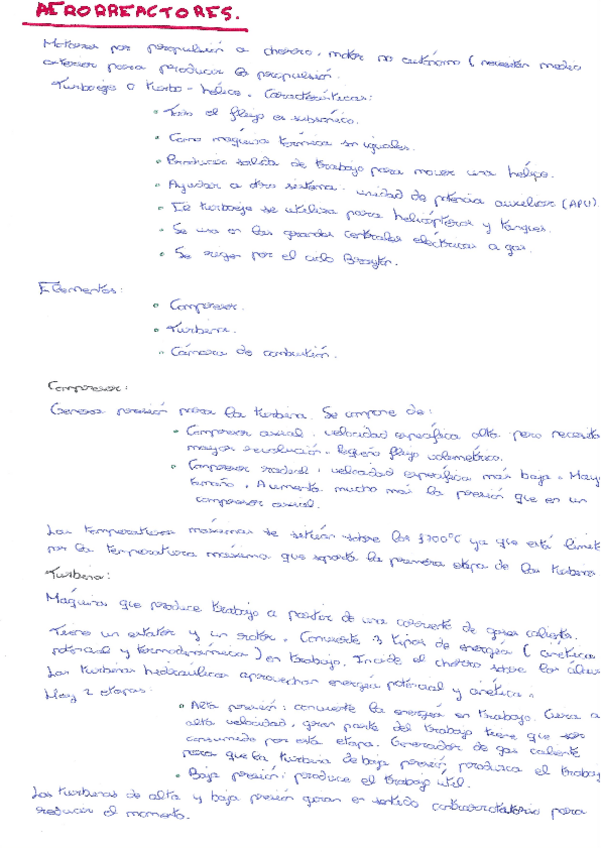 AERORREACTORES.
Motores por propulsión a chorro, motor no autónomo (necesitan medio
exterior para producir la propulsión.
Turboeje o turbo-hélice. Características:
• Todo el flujo es subsónico.
• Como máquina térmica son iguales.
• Producir salida de trabajo para mover una hélice.
• Ayudar a otro sistema: unidad de potencia auxiliar (APU).
• El turboeje se utiliza para helicópteros y tanques.
• Se usa en las grandes centrales eléctricas a gas.
• Se rigen por el ciclo Brayton.
Elementos:
• Compresor.
• Turbina.
• Cámara de combustión.
Compresor:
Genera presión para la turbina. Se compone de:
• Compresor axial: velocidad específica alta pero necesita
mayor revolución. Pequeño flujo volumétrico.
• Compresor radial: velocidad específica más baja. Mayo
tamaño. Aumenta mucho más la presión que en un
compresor axial.
Las temperaturas máximas se sitúan sobre los 1700°C ya que está limit
por la temperatura máxima que soporta la primera etapa de las turbina
Turbina:
Máquina que produce trabajo a partir de una corriente de gases caliente.
Tiene un estator y un rotor. Convierte 3 tipos de energía (cinética
potencial y termodinámica) en trabajo. Incide el chorro sobre los álave
Las turbinas hidráulicas aprovechan energía potencial y cinética.
Hay 2 etapas:
• Alta presión: convierte la energía en trabajo. Gira a
alta velocidad, gran parte del trabajo tiene que ser
consumido por esta etapa. Generador de gas caliente
para que la turbina de baja presión produzca el trabajo
• Baja presión: produce el trabajo útil.
Las turbinas de alta y baja presión giran en sentido contrarrotatorio para
reducir el momento.